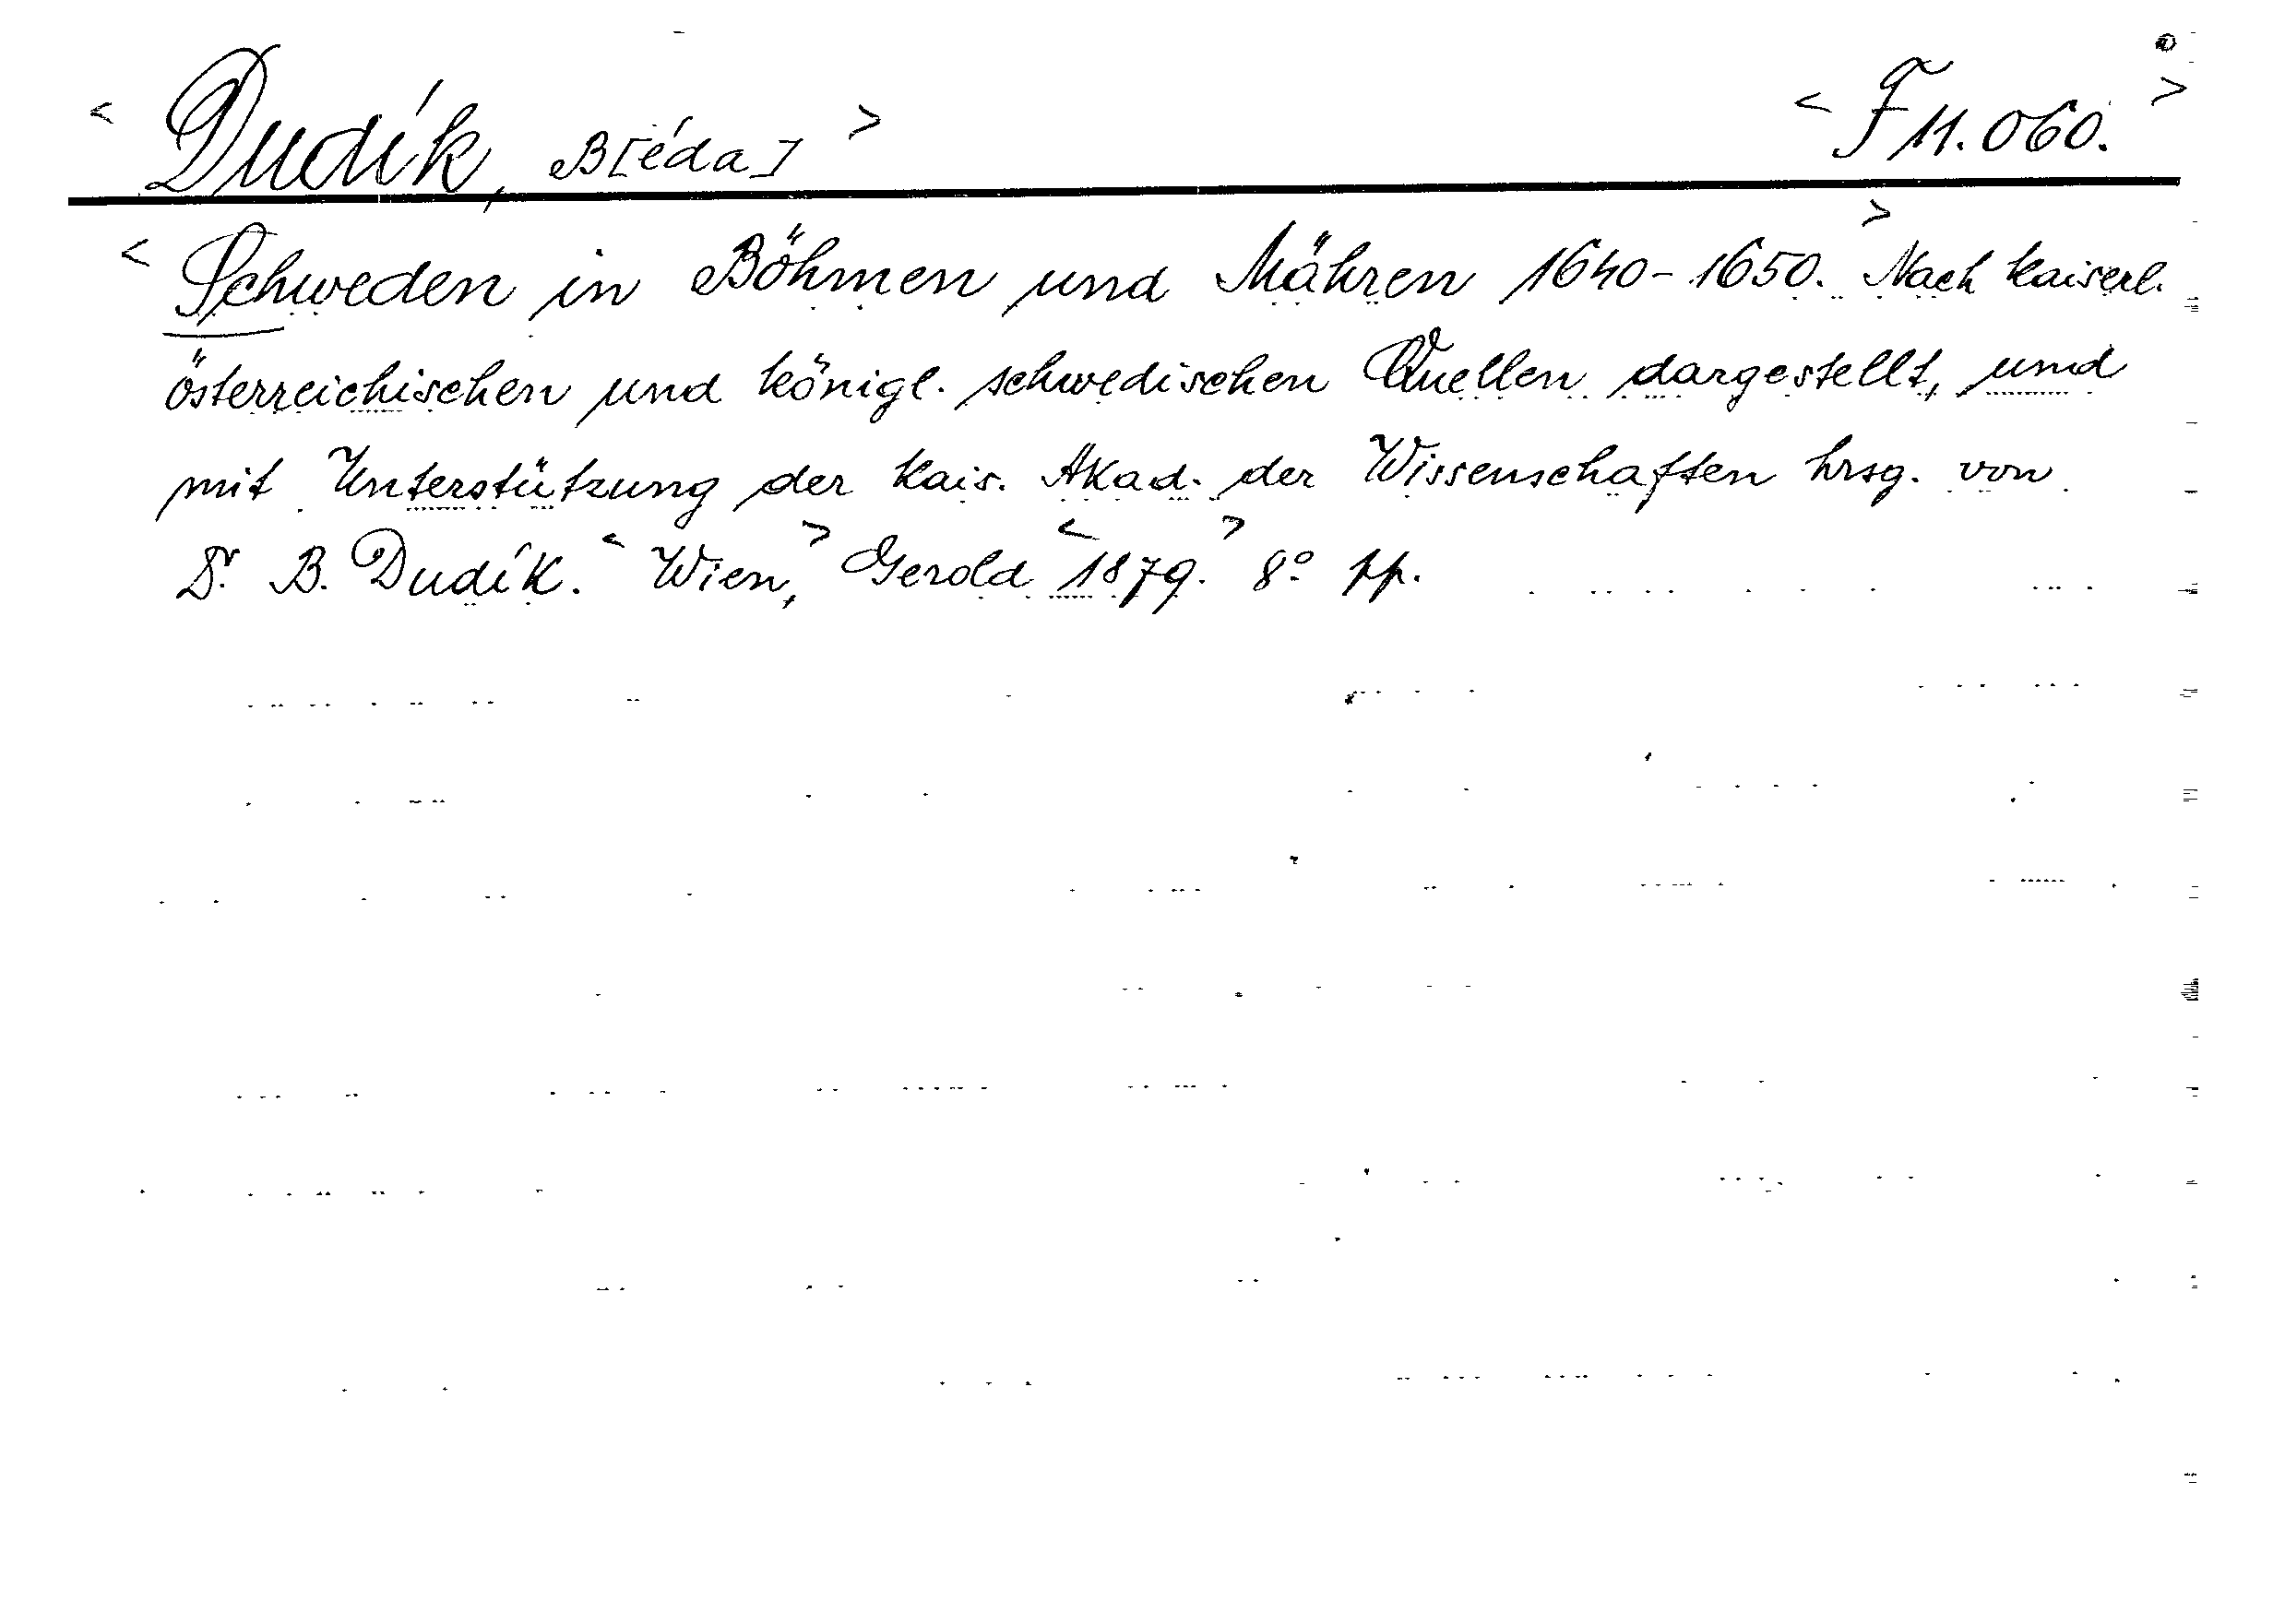 < Dudík, B[éda] > < F 11.060. >
< Schweden in Böhmen und Mähren 1640-1650. > Nach kaiserl.
österreichischen und königl. schwedischen Quellen dargestellt, und
mit Unterstützung der kais. Akad. der Wissenschaften hrsg. von
Dr. B. Dudík. < Wien, > Gerold < 1879. > 8° pp.